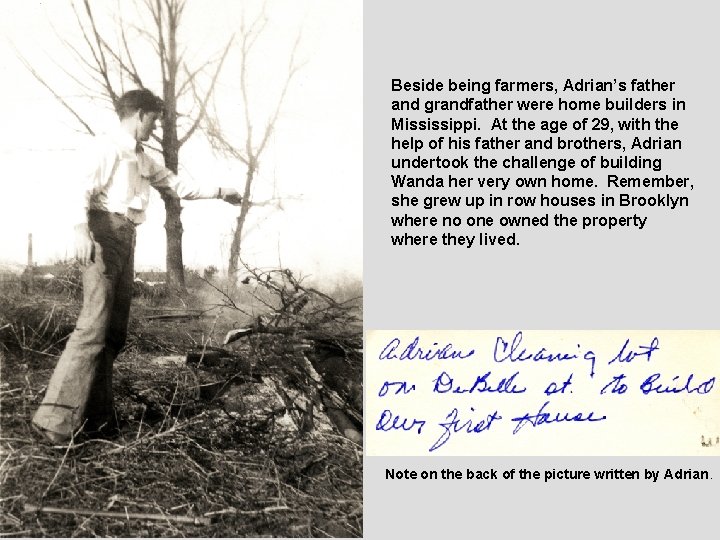 Beside being farmers, Adrian’s father
and grandfather were home builders in
Mississippi.  At the age of 29, with the
help of his father and brothers, Adrian
undertook the challenge of building
Wanda her very own home.  Remember,
she grew up in row houses in Brooklyn
where no one owned the property
where they lived.
Adrian Cleaning lot
on DeBelle st. to Build
our first House
Note on the back of the picture written by Adrian.